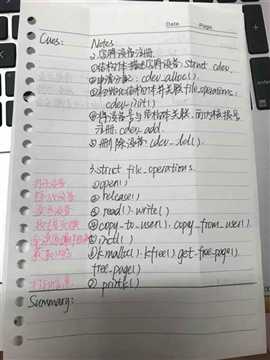 Date Page
Cues: Notes
2.字符设备注册
①结构体描述字符设备: struct cdev
②申请分配: cdev_alloc()
③初始化结构体并关联file_operations,
cdev_init()
④将设备号与结构体关联,向内核
注册: cdev_add
⑤删除设备: cdev_del()
3.struct file_operations
打开设备 ①open()
释放设备 ②release()
③read().write()
④copy_to_user().copy_from_user()
⑤ioctl()
⑥kmalloc().kfree().get_free_page()
free_page()
⑦printk()
Summary: